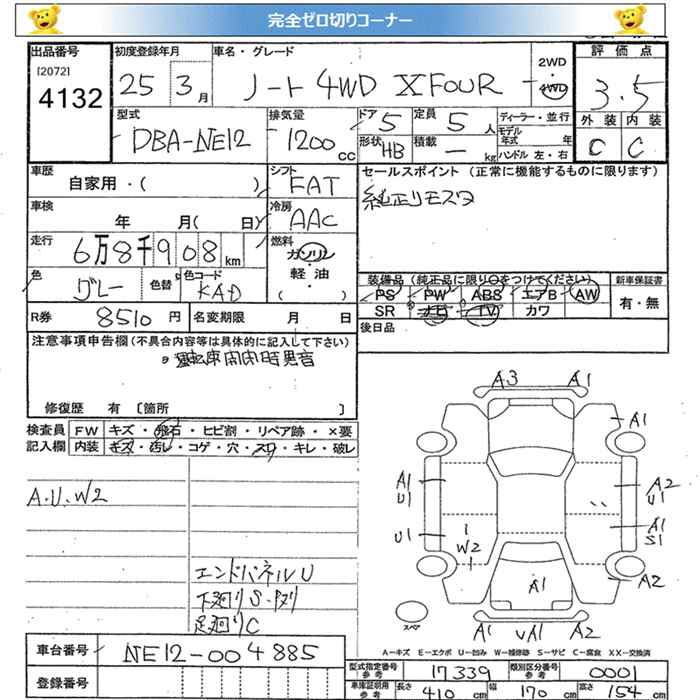 完全ゼロ切りコーナー
出品番号 初度登録年月 車名・グレード 2WD・4WD 評価点
[2072]
4132 25 3月 ノート 4WD X FOUR 3.5
型式 排気量 ドア 5 定員 5人 ディーラー・並行 外装 内装
DBA-NE12 1200cc 形状 HB 積載 ー kg モデル年式 年 C C
ハンドル 左・右
車歴 シフト セールスポイント (正常に機能するものに限ります)
自家用・( ) FAT 純正リモスタ
車検 年 月( 日) 冷房 AAC
走行 6万8千908km 燃料 ガソリン・軽油 ( )
色 グレー 色替 色コード KAD
装備品 (純正品に限り○をつけてください) 新車保証書
PS PW ABS エアB AW 有・無
SR ナビ TV カワ
R券 8510円 名変期限 月 日 後日品
注意事項申告欄 (不具合内容等は具体的に記入して下さい)
修復歴 有 [箇所 ]
検査員記入欄 FW キズ・飛石・ヒビ割・リペア跡・×要
内装 キズ・汚レ・コゲ・穴・スワ・キレ・破レ
A3 A1
A1
A1 U1
A2 U1
U1
A1 S1
W2
A1
A2
A1 UA1 A2
スペア
A.U.W2
エンドパネルU
下廻りS・タリ
足廻りC
A-キズ E-エクボ U-凹み W-補修跡 S-サビ C-腐食 XX-交換済
車台番号 NE12-004885
登録番号
型式指定番号 参考 17339 類別区分番号 参考 0001
車庫証明用 参考 長さ 410cm 幅 170cm 高さ 154cm